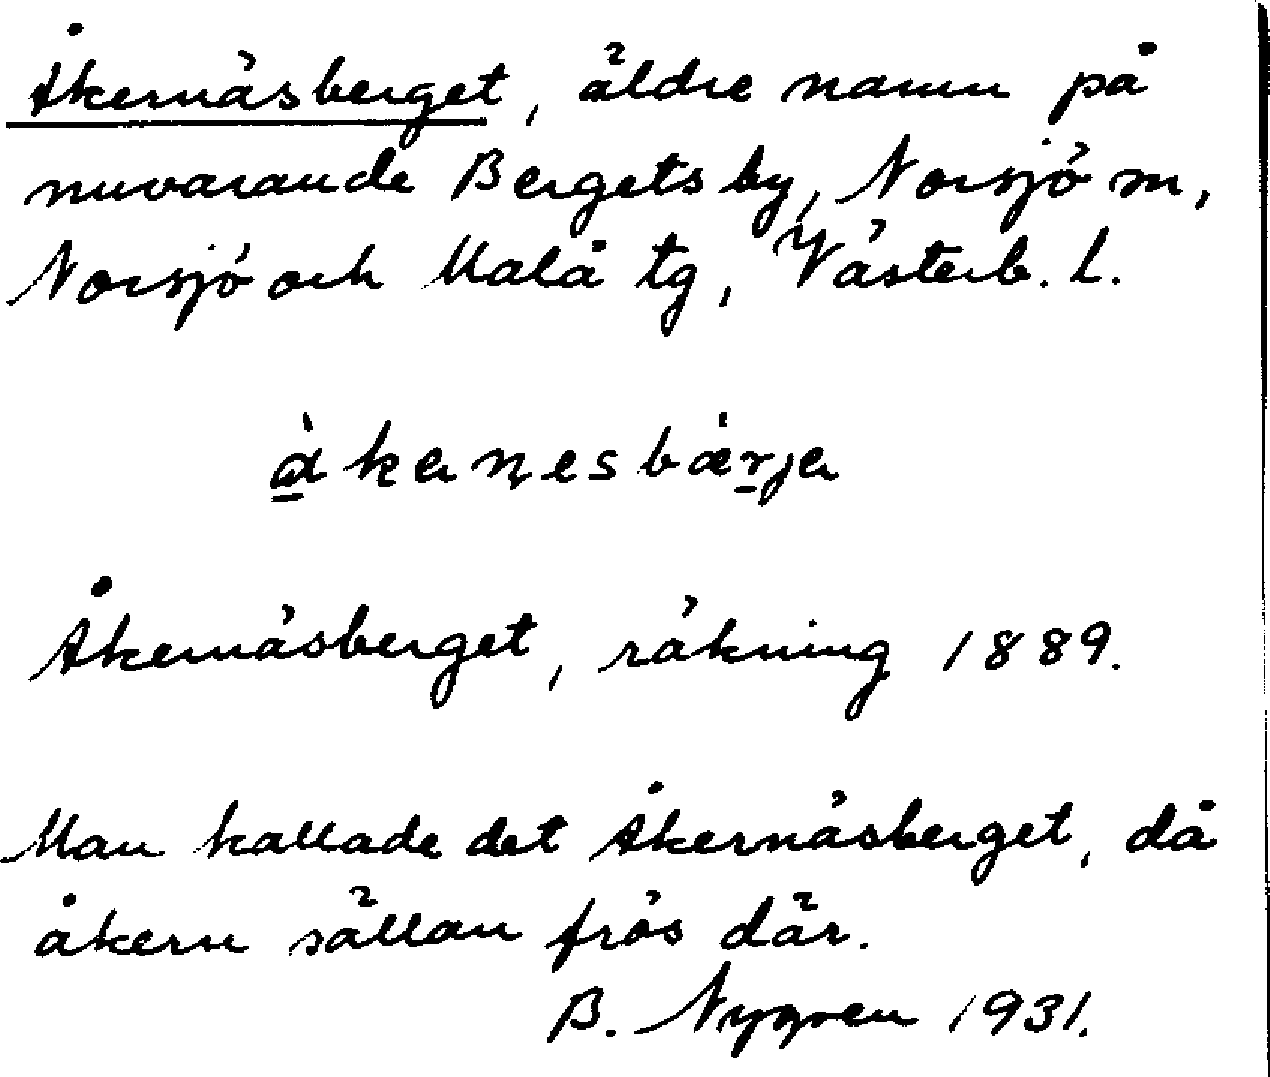 Åkernäsberget, äldre namn på
nuvarande Bergetsby, Norsjö sn,
Norsjö och Malå tg, Västerb. l.
Åkernäsberget, räkning 1889.
Man kallade det Åkernäsberget, då
åkern sällan frös där.
B. Nygren 1931.